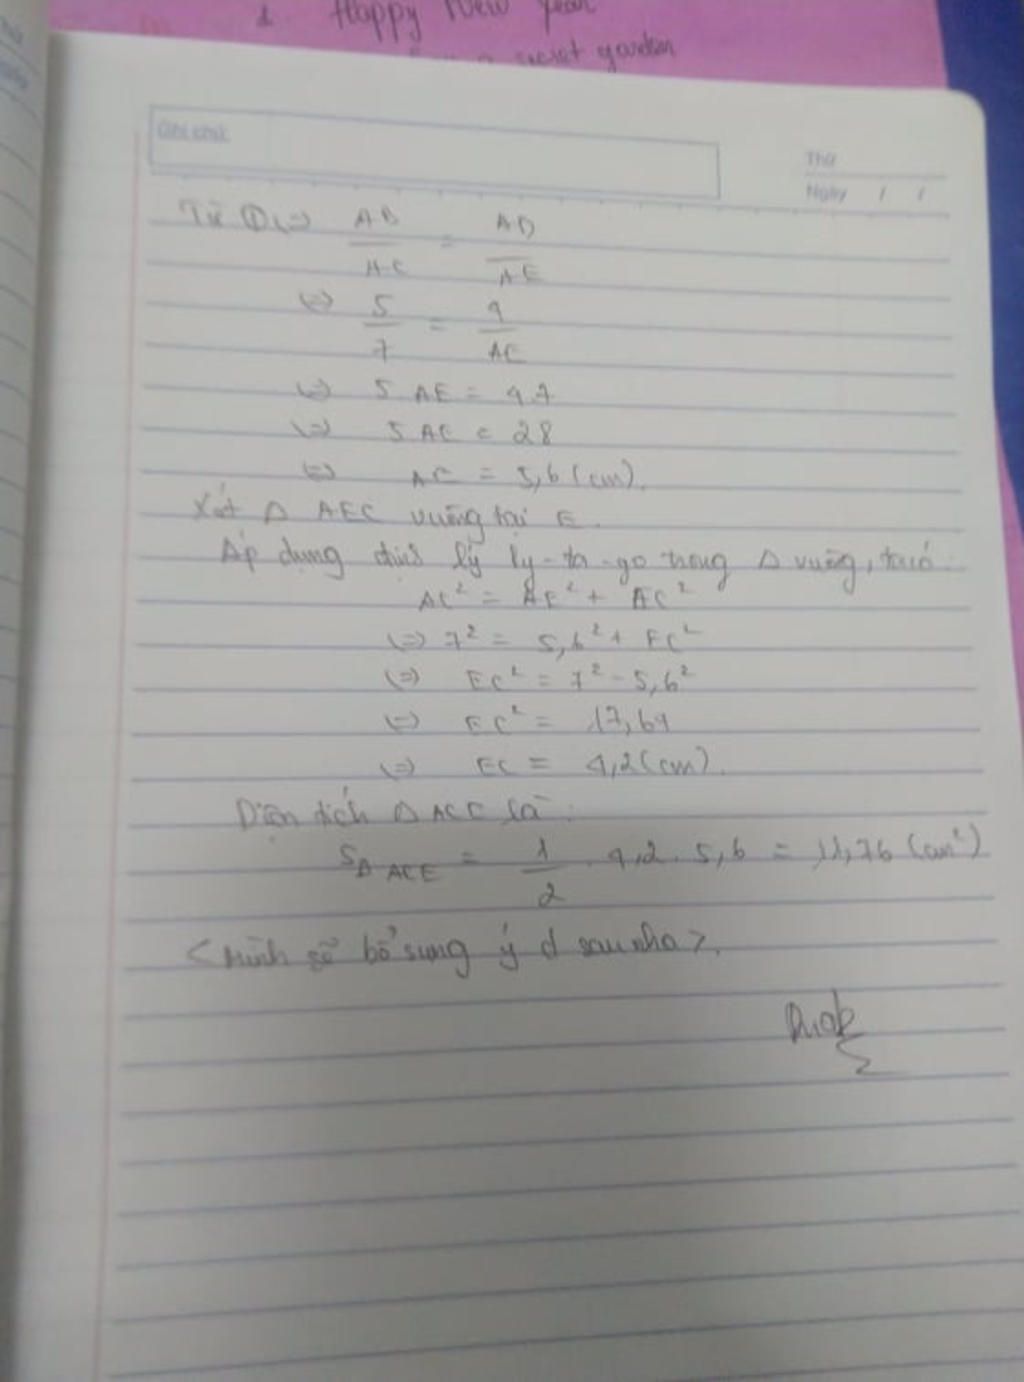 1. Happy New Year
secret garden
Ghi chú:
Thứ
Ngày / /
Từ ① (=) AB/AC = AD/AE
(=) 5/7 = 4/AE
(=) 5 AE = 4.7
(=) 5 AE = 28
(=) AE = 5,6 (cm).
Xét Δ AEC vuông tại E.
Áp dụng định lý Py-ta-go trong Δ vuông, ta có:
AC² = AE² + EC²
(=) 7² = 5,6² + EC²
(=) EC² = 7² - 5,6²
(=) EC² = 17,64
(=) EC = 4,2 (cm).
Diện tích Δ ACE là:
S Δ ACE = 1/2 . 4,2 . 5,6 = 11,76 (cm²)
< Mình sẽ bổ sung ý d sau nha >.